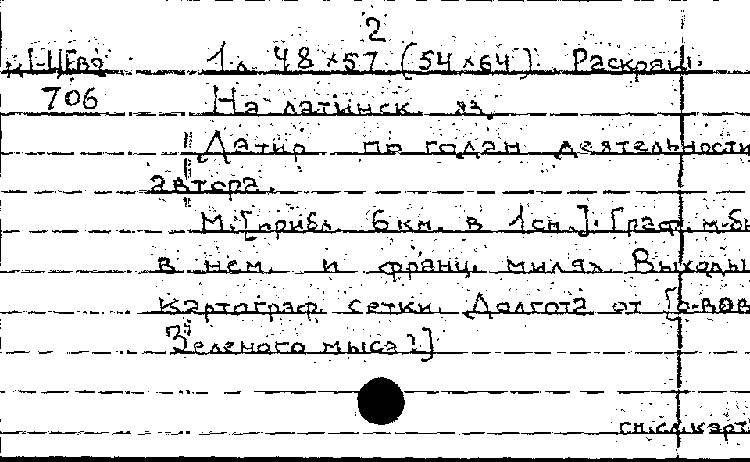 2
1 л. 48×57 (54×64). Раскраш.
706 На латинск. яз.
Датир. по годам деятельности
автора.
М. [прибл. 6 км. в 1 см.]. Граф. м-бы
в нем. и франц. милях. Выходы
картограф. сетки. Долгота от [о-вов
Зеленого мыса?]
см. сл. карт.